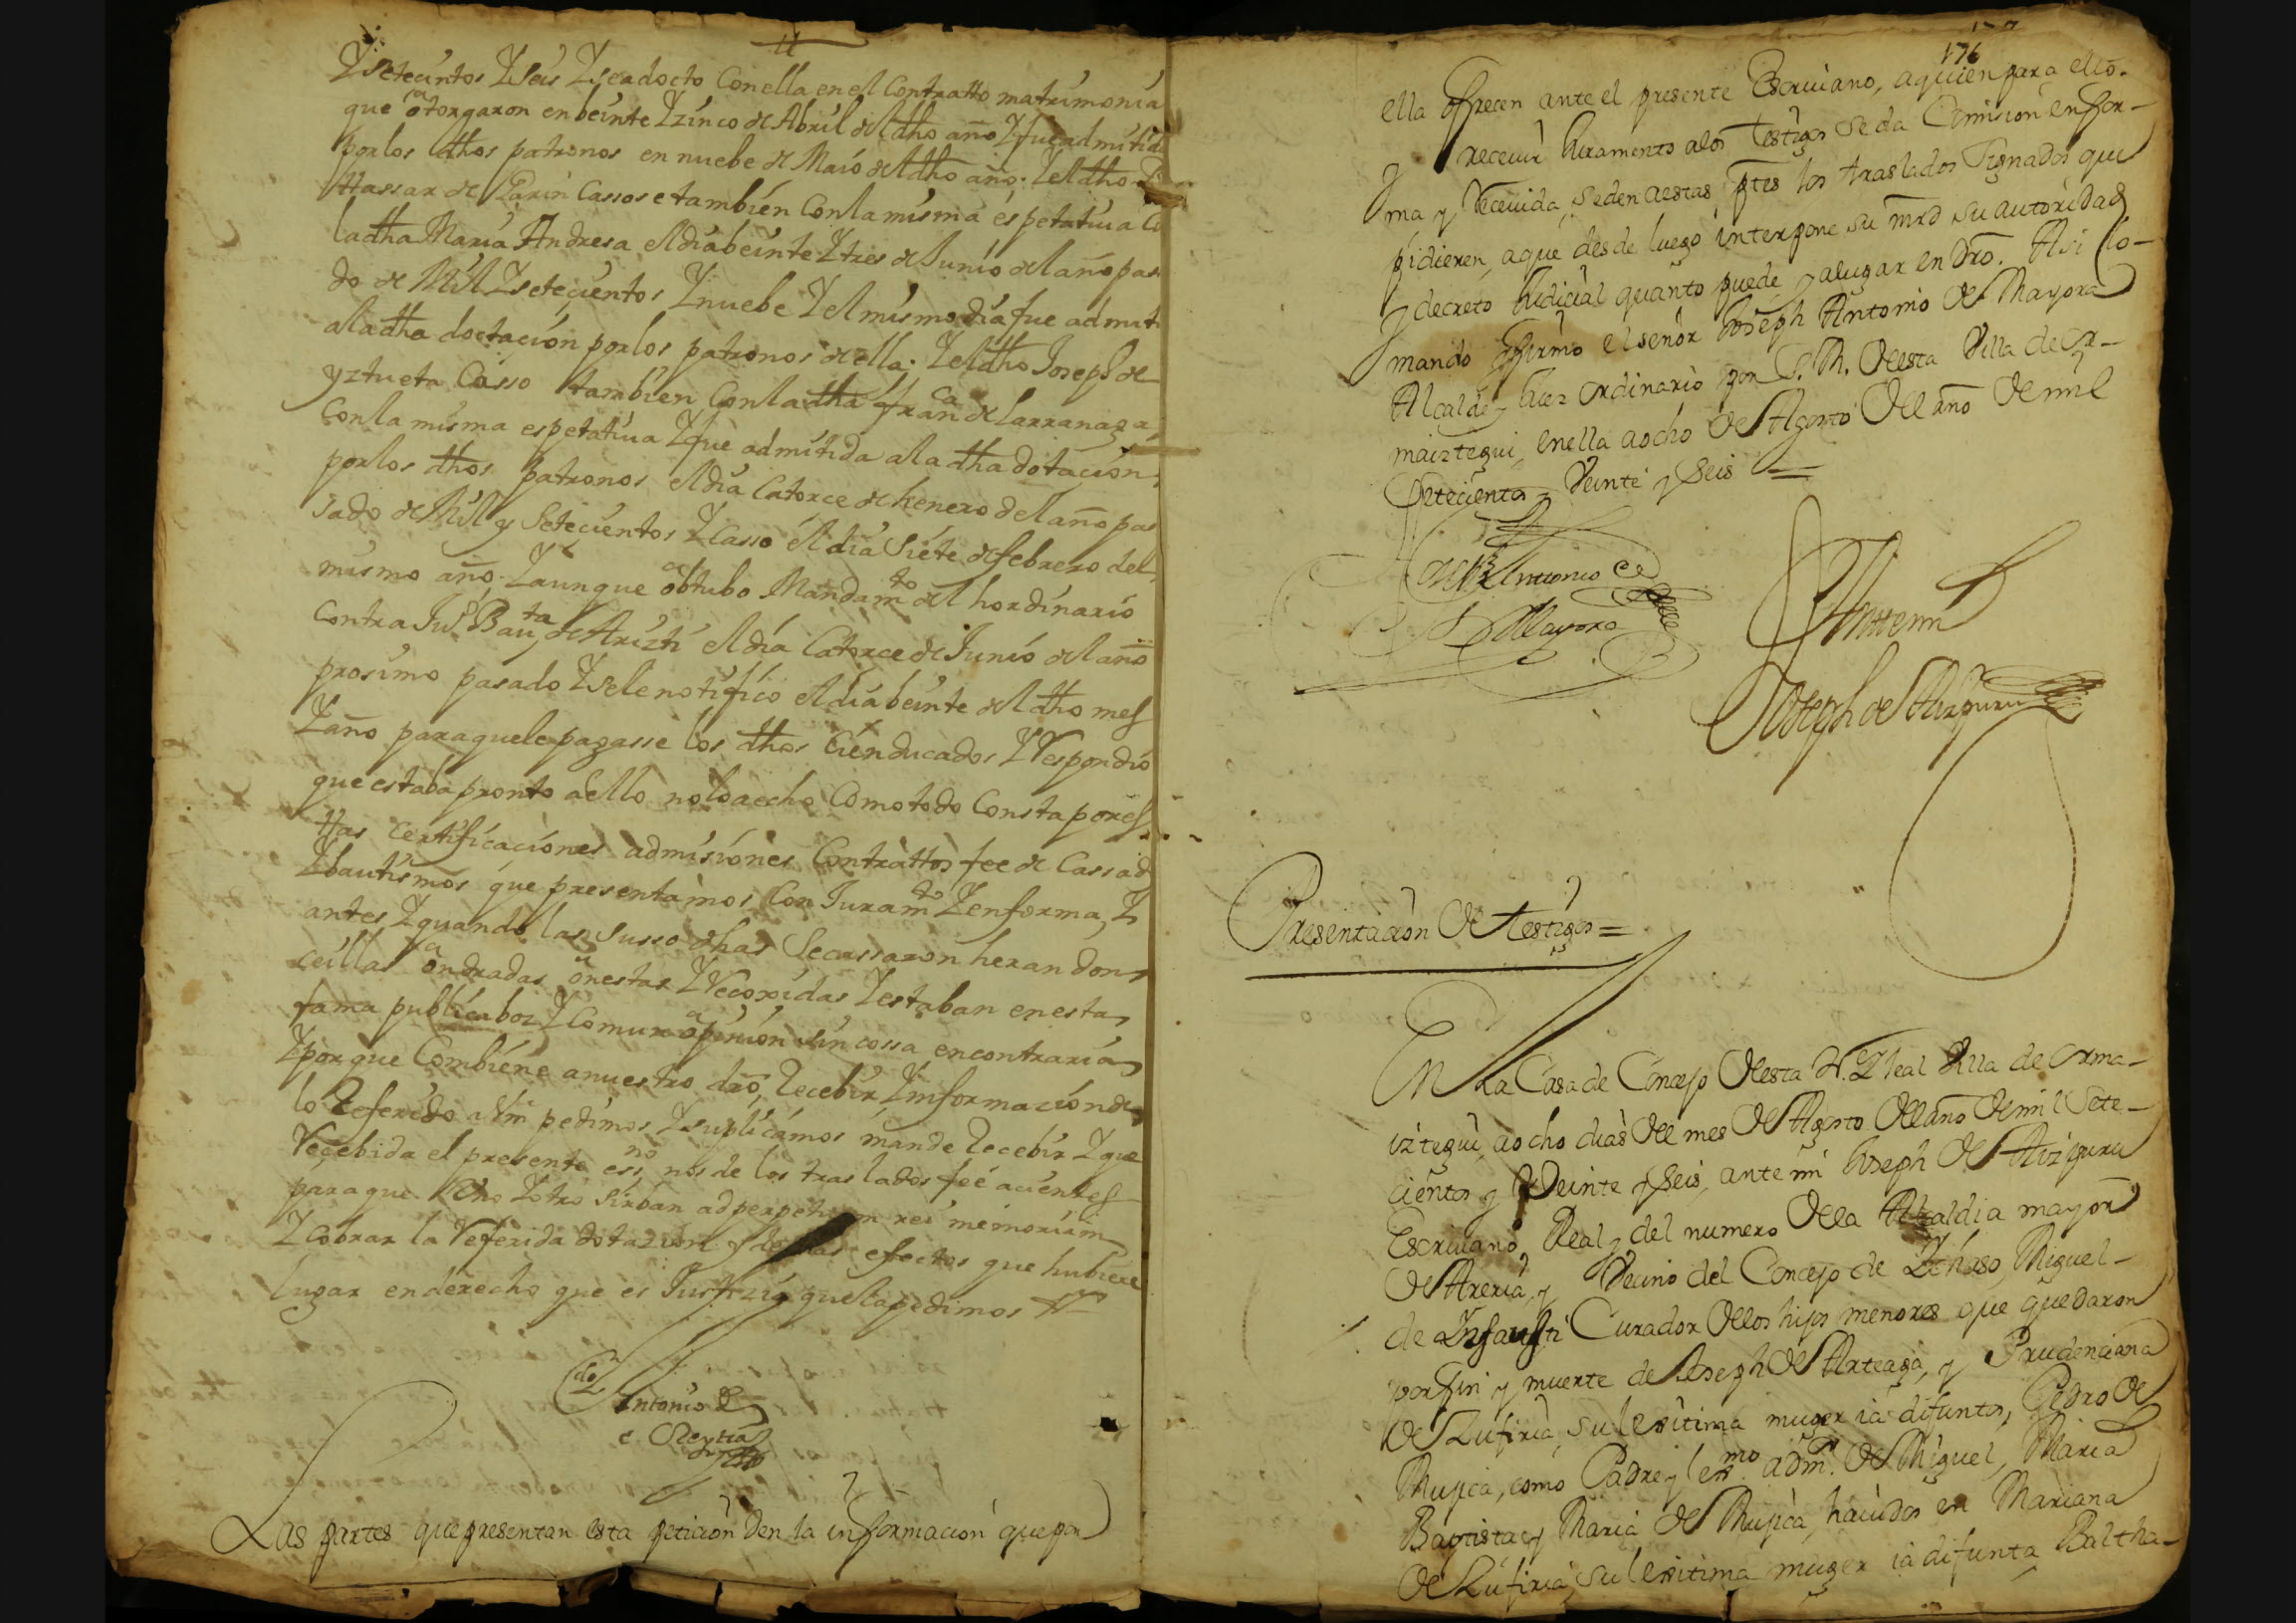 Y setecintos Y seis Y sea docto Con ella en el Contratto matrimonia
que otorgaron en beinte Y zinco de Abril del dho año Y fue admitid
por los dhos patronos en nuebe de Maio del dho año. Y el dho
de Larin Casso se tambien Con la misma espetatiua Co
la dha Maria Andresa el dia beinte Y tres de Junio del año pas
do de Mil Y setecientos Y nuebe Y el mismo dia fue admiti
a la dha doctacion por los patronos de ella. Y el dho Joseph de
yztueta Casso tambien Con la dha fran.ca de Larranaga
Con la misma espetatiua Y fue admitida a la dha dotacion
por los dhos patronos el dia Catorce de henero del año pas
sado de Mil y Setecientos Y Casso el dia Siete de febrero del
mismo año. Y aunque obtubo Mandam.to del hordinario
Contra Ju.o Bau.ta de Arizti el dia Catorce de Junio del año
prosimo pasado Y se le notifico el dia beinte del dho mes
Y año para que le pagasse los dhos Cien ducados Y Respondio
que estaba pronto a ello no lo a echo Como todo Consta por es
ttas Certificaciones admisiones Contrattos fee de Cassad
Y bautismos que presentamos Con Juram.to Y en forma, Y
antes Y quando las susso dhas Se cassaron heran don
ceillas ondradas onestas Y Recoxidas Y estaban en esta
fama publica boz Y Comun opinion sin cossa en contraria
Y porque Combiene a nuestro dro, Recebir Ynformacion de
lo Referido a Vm pedimos Y suplicamos mande Recebir Y que
Recebida el presente es.no nos de los traslados fee acientes
para que Vno Y otro sirban ad perpetuam rei memoriam
Y Cobrar la Referida dotazion y demas efectos que hubiere
lugar en derecho que es Justizia que la pedimos
Antonio de
Las partes que presentan esta peticion den la informacion que por
176
ella ofrecen ante el presente Escriuano, a quien para ello.
y receuir Juramento a los Testigos se da Comision en for-
ma y Receuida, se den a estas ptes los traslados Signados que
pidieren, a que desde luego interpone su mrd su autoridad
y decreto Judicial quanto puede y a lugar en Dro. Asi lo-
mando y firmo el señor Joseph Antonio de Mayora
Alcalde y Juez ordinario por S. M. de esta Villa de Or-
maiztegui, en ella a ocho de Agosto del año de mil
Setecientos y Veinte y Seis =
Joseph Antonio de
Mayora
Ante mi
Joseph de Aizpuru
Presentacion de testigos =
En la Casa de Concejo de esta N. Y leal Villa de Orma-
iztegui, a ocho dias del mes de Agosto del año de mil Sete-
cientos y Veinte y Seis, ante mi Joseph de Aizpuru
Escriuano Real y del numero de la Alcaldia mayor
de Areria, y Vecino del Concejo de Ychaso, Miguel-
de Insausti Curador de los hijos menores que quedaron
por fin y muerte de Joseph de Arteaga, y Prudenciana
de Lufiria, su lexitima muger ia difuntos, Pedro de
Mujica, como Padre y lex.mo adm.r de Miguel, Maria
Baptista y Maria de Mujica, hauidos en Mariana
de Lufiria, su lexitima muger ia difunta, Baltha-